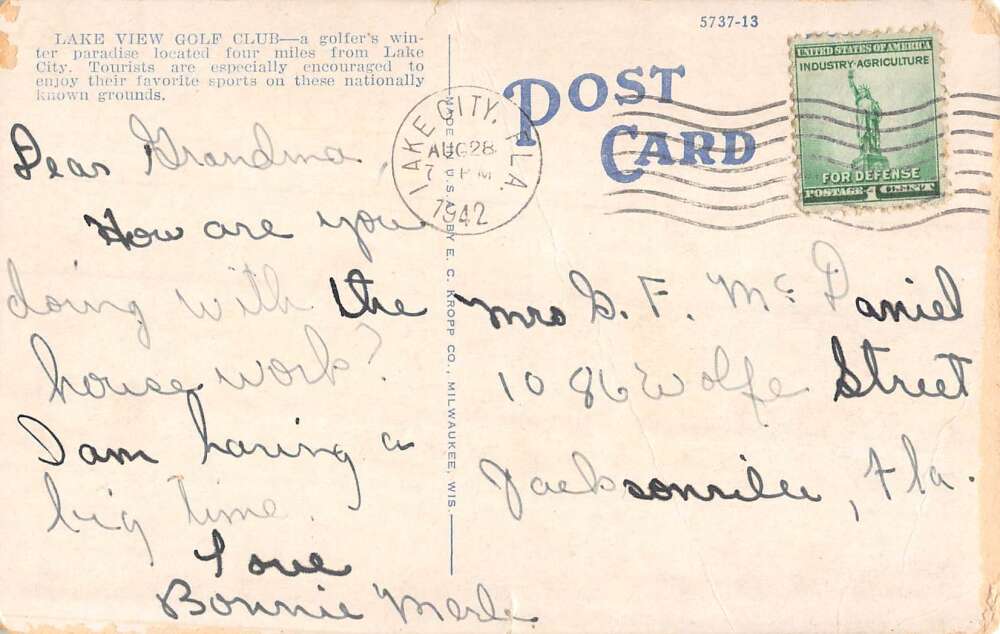 5737-13
LAKE VIEW GOLF CLUB—a golfer's win-
ter paradise located four miles from Lake
City. Tourists are especially encouraged to
enjoy their favorite sports on these nationally
known grounds.
POST
CARD
LAKE CITY, FLA.
AUG 28
7 PM
1942
UNITED STATES OF AMERICA
INDUSTRY·AGRICULTURE
FOR DEFENSE
POSTAGE 1 CENT
MADE IN U.S.A. BY E. C. KROPP CO., MILWAUKEE, WIS.
Dear Grandma,
How are you
doing with the
house work?
I am having a
big time.
Love
Bonnie Merle
Mrs G. F. Mc Daniel
1086 Wolfe Street
Jacksonville, Fla.